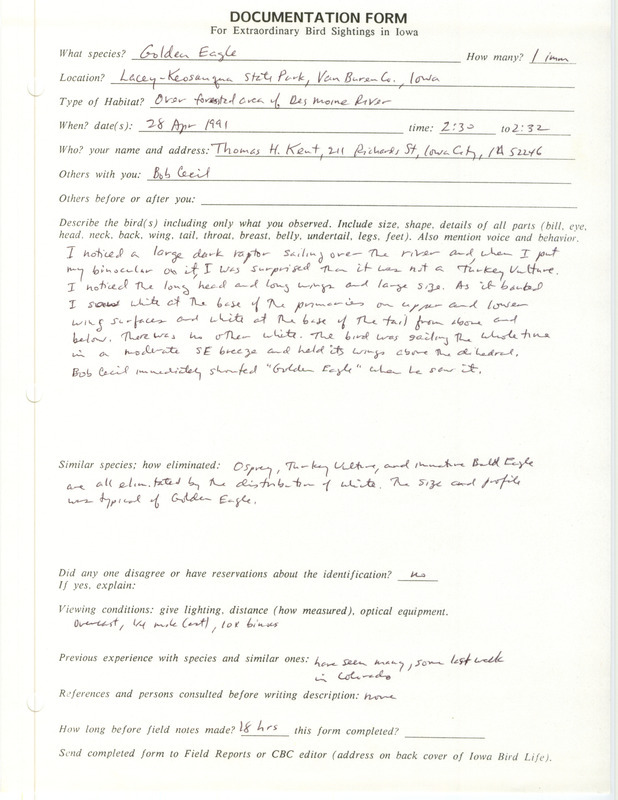 DOCUMENTATION FORM
For Extraordinary Bird Sightings in Iowa
What species? Golden Eagle How many? 1 imm
Location? Lacey-Keosauqua State Park, Van Buren Co., Iowa
Type of Habitat? Over forested area of Des Moine River
When? date(s): 28 Apr 1991 time: 2:30 to 2:32
Who? your name and address: Thomas H. Kent, 211 Richards St, Iowa City, IA 52246
Others with you: Bob Cecil
Others before or after you:
Describe the bird(s) including only what you observed. Include size, shape, details of all parts (bill, eye,
head, neck, back, wing, tail, throat, breast, belly, undertail, legs, feet). Also mention voice and behavior.
I noticed a large dark raptor sailing over the river and when I put
my binocular on it, I was surprised that it was not a Turkey Vulture.
I noticed the long head and long wings and large size. As it banked
I saw white at the base of the primaries on upper and lower
wing surfaces and white at the base of the tail from above and
below. There was no other white. The bird was sailing the whole time
in a moderate SE breeze and held its wings above the dihedral.
Bob Cecil immediately shouted "Golden Eagle" when he saw it.
Similar species; how eliminated: Osprey, Turkey Vulture, and immature Bald Eagle
are all eliminated by the distribution of white. The size and profile
was typical of Golden Eagle.
Did any one disagree or have reservations about the identification? no
If yes, explain:
Viewing conditions: give lighting, distance (how measured), optical equipment.
Overcast, 1/4 mile (est), 10x binocs
Previous experience with species and similar ones: have seen many, some last week
in Colorado
References and persons consulted before writing description: none
How long before field notes made? 18 hrs this form completed?
Send completed form to Field Reports or CBC editor (address on back cover of Iowa Bird Life).